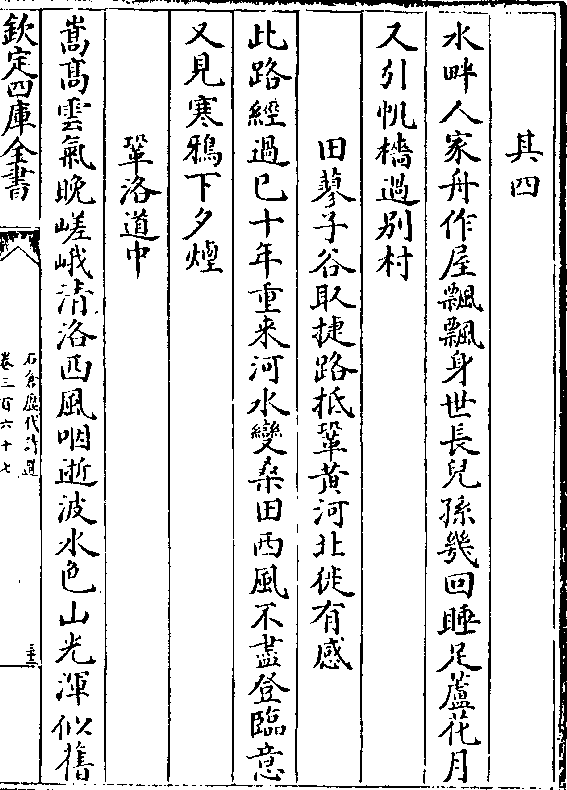 其四
水畔人家舟作屋飄飄身世長兒孫幾回睡足蘆花月
又引帆檣過別村
田蓼子谷取捷路抵鞏黄河北徙有感
此路經過已十年重来河水變桑田西風不盡登臨意
又見寒鴉下夕煙
鞏洛道中
嵩髙雲氣晩嵯峨清洛西風咽逝波水色山光渾似舊
欽定四庫全書
石倉歴代詩選
卷三百六十七